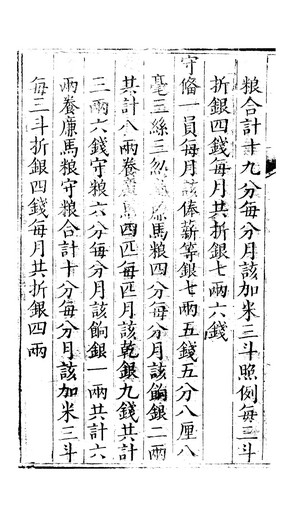 粮合計十九分每分月該加米三斗照例每三斗
折銀四錢每月共折銀七兩六錢
守俻一員每月該俸薪等銀七兩五錢五分八厘八
毫五絲三忽養廉馬粮四分每分月該餉銀二兩
共計八兩養廉馬四匹每匹月該乾銀九錢共計
三兩六錢守粮六分每分月該餉銀一兩共計六
兩養廉馬粮守粮合計十分每分月該加米三斗
每三斗折銀四錢每月共折銀四兩